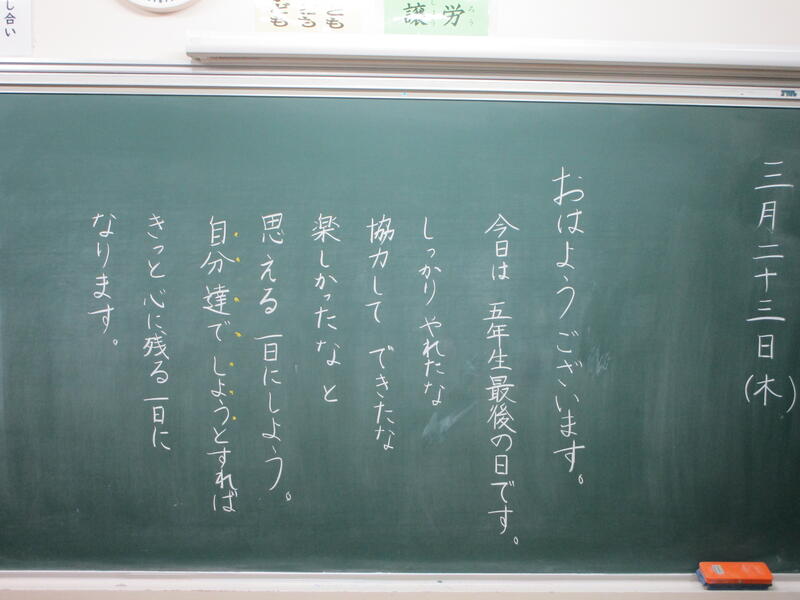 三月二十三日(木)
おはようございます。
今日は 五年生最後の日です。
しっかり やれたな
協力して できたな
楽しかったな と
思える 一日にしよう。
自分達で しようとすれば
きっと 心に残る 一日に
なります。
労 ろう
譲
し合い